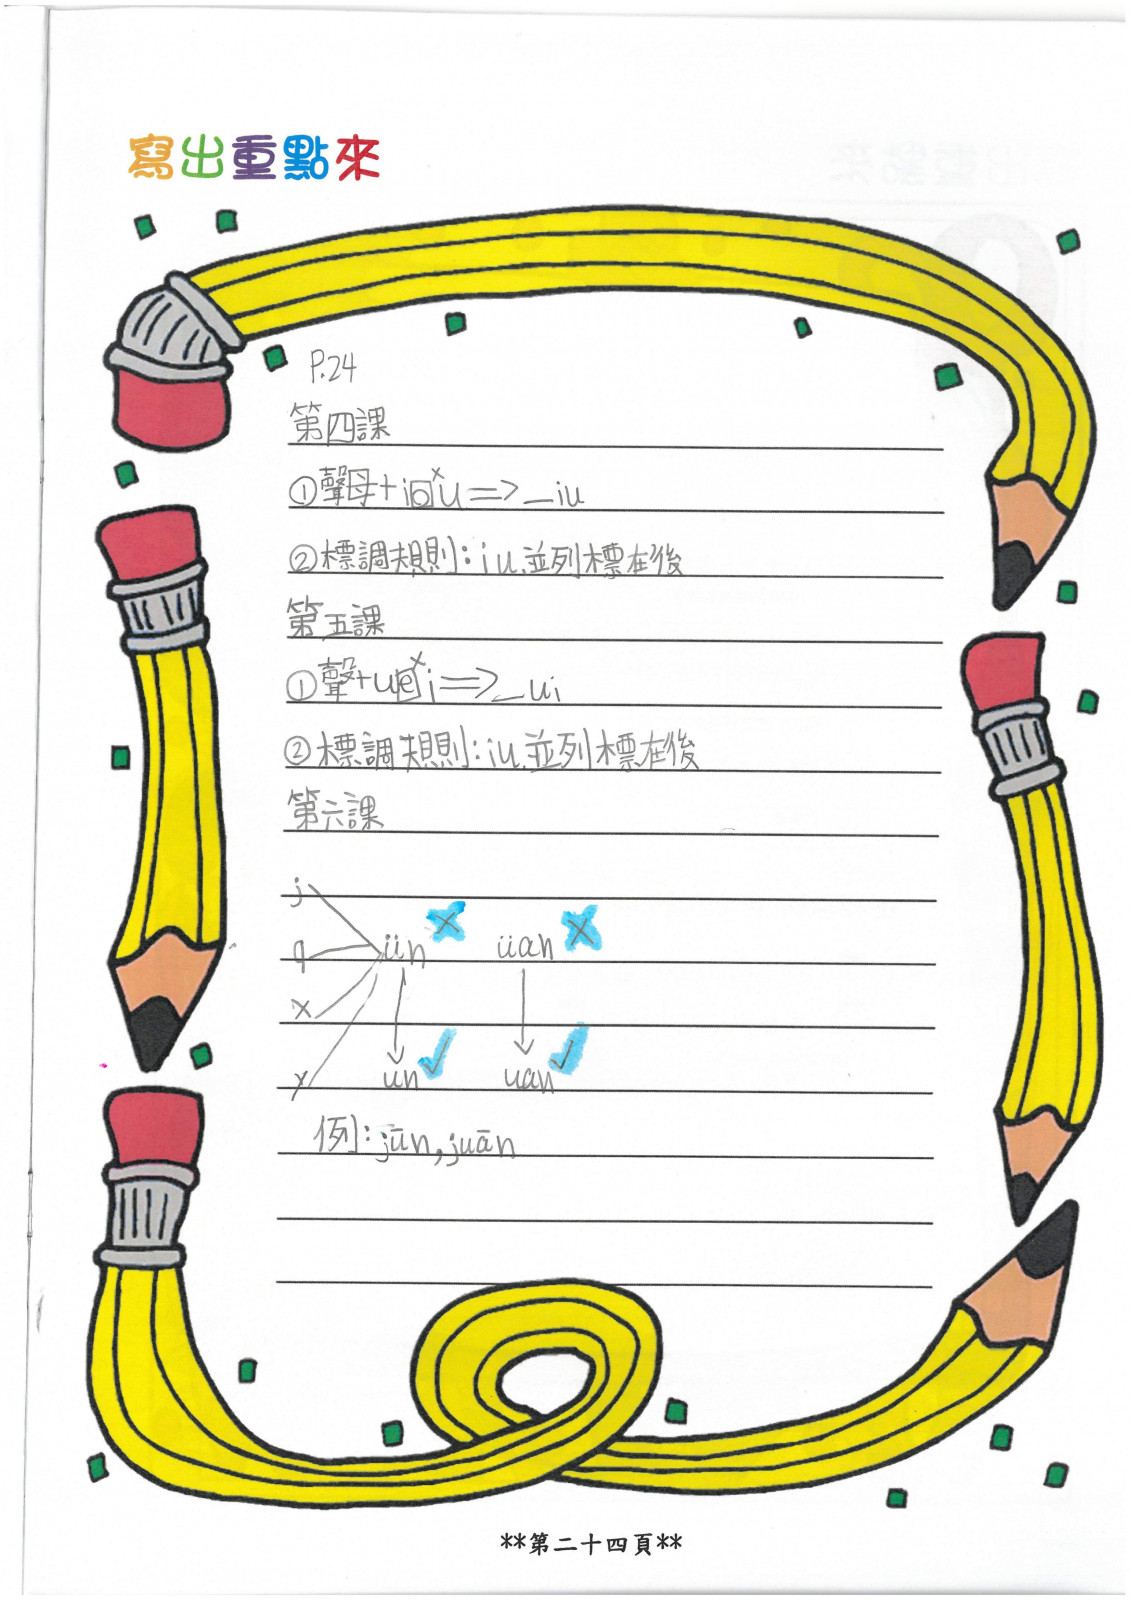 寫出重點來
P.24
第四課
①聲母+iou×=>_iu
②標調規則:iu並列標在後
第五課
①聲+uei×=>_ui
②標調規則:iu並列標在後
第六課
j
q ün × üan ×
x
y un ✓ uan ✓
例:jūn,juān
**第二十四頁**